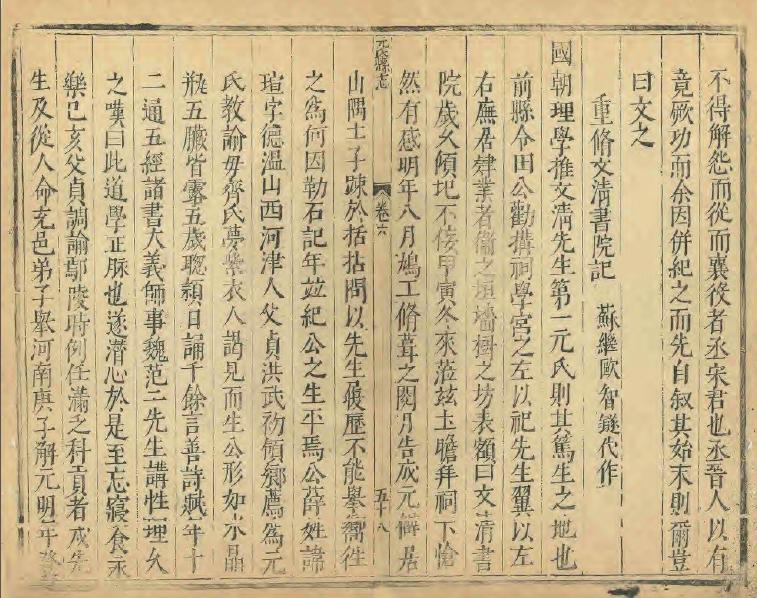 不得解怨而從而襄役者丞宋君也丞晉人以有
竟厥功而余因併紀之而先自叙其始末則爾豈
曰文之
重脩文清書院記 蘇繼歐智鐩代作
國朝理學推文清先生第一元氏則其篤生之地也
前縣令田公勸搆祠學宮之左以祀先生翼以左
右廡居肄業者衛之垣墻樹之坊表額曰文清書
院歲久傾圮不佞甲寅冬來蒞玆土瞻拜祠下愴
然有感明年八月鳩工脩葺之閱月告成元僻居
元氏縣志 卷六 五十八
山隅士子踈於括拈問以先生履歷不能舉嚮徃
之爲何因勒石記年並紀公之生平焉公薛姓諱
瑄字德溫山西河津人父貞洪武初領鄉薦爲元
氏教諭母齊氏夢紫衣人謁見而生公形如水晶
瓶五臟皆露五歲聰頴日誦千餘言善詩賦年十
二通五經諸書大義師事魏范二先生講性理久
之嘆曰此道學正脉也遂潛心於是至忘寢食永
樂己亥父貞調諭鄢陵時例任滿乏科貢者戍先
生及從人命充邑弟子舉河南庚子解元明年登